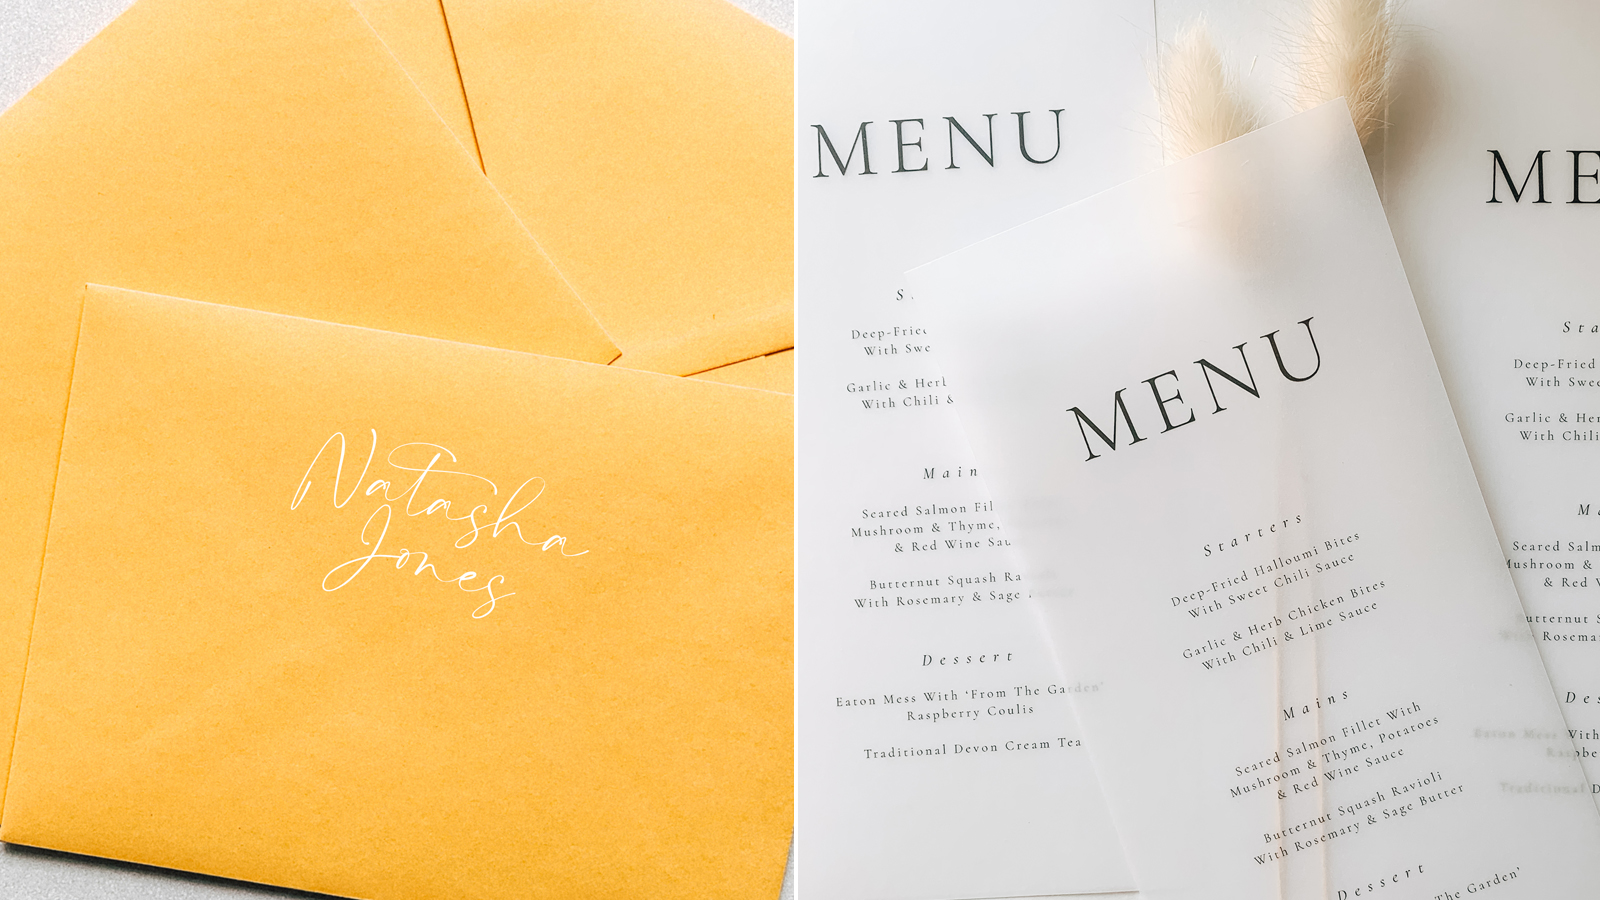 Natasha
Jones
MENU
Deep-Fried
With Swe
Garlic & Herb
With Chili &
Mains
Seared Salmon Fil
Mushroom & Thyme,
& Red Wine Sau
Butternut Squash Ra
With Rosemary & Sage
Dessert
Eaton Mess With ‘From The Garden’
Raspberry Coulis
Traditional Devon Cream Tea
MENU
Starters
Deep-Fried Halloumi Bites
With Sweet Chili Sauce
Garlic & Herb Chicken Bites
With Chili & Lime Sauce
Mains
Seared Salmon Fillet With
Mushroom & Thyme, Potatoes
& Red Wine Sauce
Butternut Squash Ravioli
With Rosemary & Sage Butter
Dessert
The Garden’
ME
Sta
Deep-Fried
With Swee
Garlic & Her
With Chili
Ma
Seared Salm
Mushroom & Th
& Red W
Butternut S
With Rosema
Des
Eaton Mess With
Raspbe
Traditional D